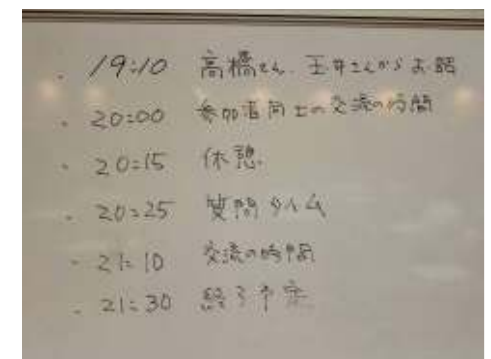 ・19:10 高橋さん、玉井さんからお話
・20:00 参加者同士の交流の時間
・20:15 休憩
・20:25 質問タイム
・21:10 交流の時間
・21:30 終了予定